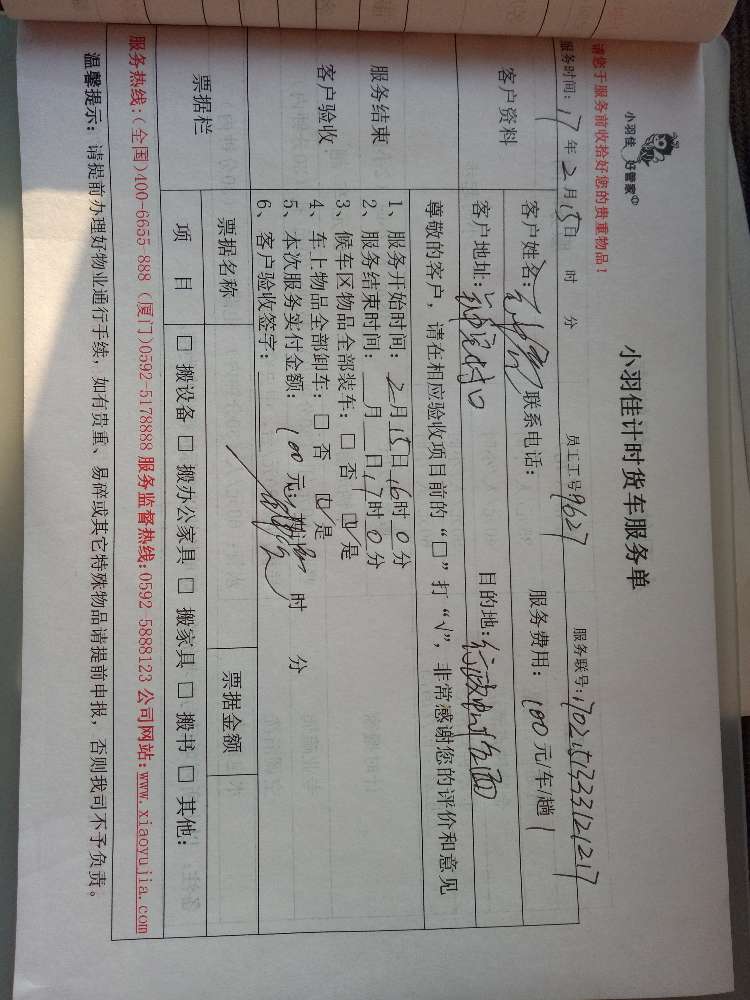 小羽佳 好管家
小羽佳计时货车服务单
请您于服务前收拾好您的贵重物品！
员工工号 9627 服务联号: 170215133312127
服务时间: 17年2月15日 时 分
客户资料 客户姓名: 联系电话: 服务费用: 100元/车/趟
客户地址: 目的地:
尊敬的客户，请在相应验收项目前的“□”打“√”，非常感谢您的评价和意见
服务结束
客户验收
1、服务开始时间: 2月15日16时0分
2、服务结束时间: 月 日17时0分
3、候车区物品全部装车: □ 否 ☑ 是
4、车上物品全部卸车: □ 否 ☑ 是
5、本次服务实付金额: 100元; 时 分
6、客户验收签字:
票据栏 票据名称 票据金额
项 目 □ 搬设备 □ 搬办公家具 □ 搬家具 □ 搬书 □ 其他:
服务热线:(全国)400-6655-888 (厦门)0592-5178888 服务监督热线:0592-5888123 公司网站:www.xiaoyujia.com
温馨提示: 请提前办理好物业通行手续，如有贵重、易碎或其它特殊物品请提前申报，否则我司不予负责。